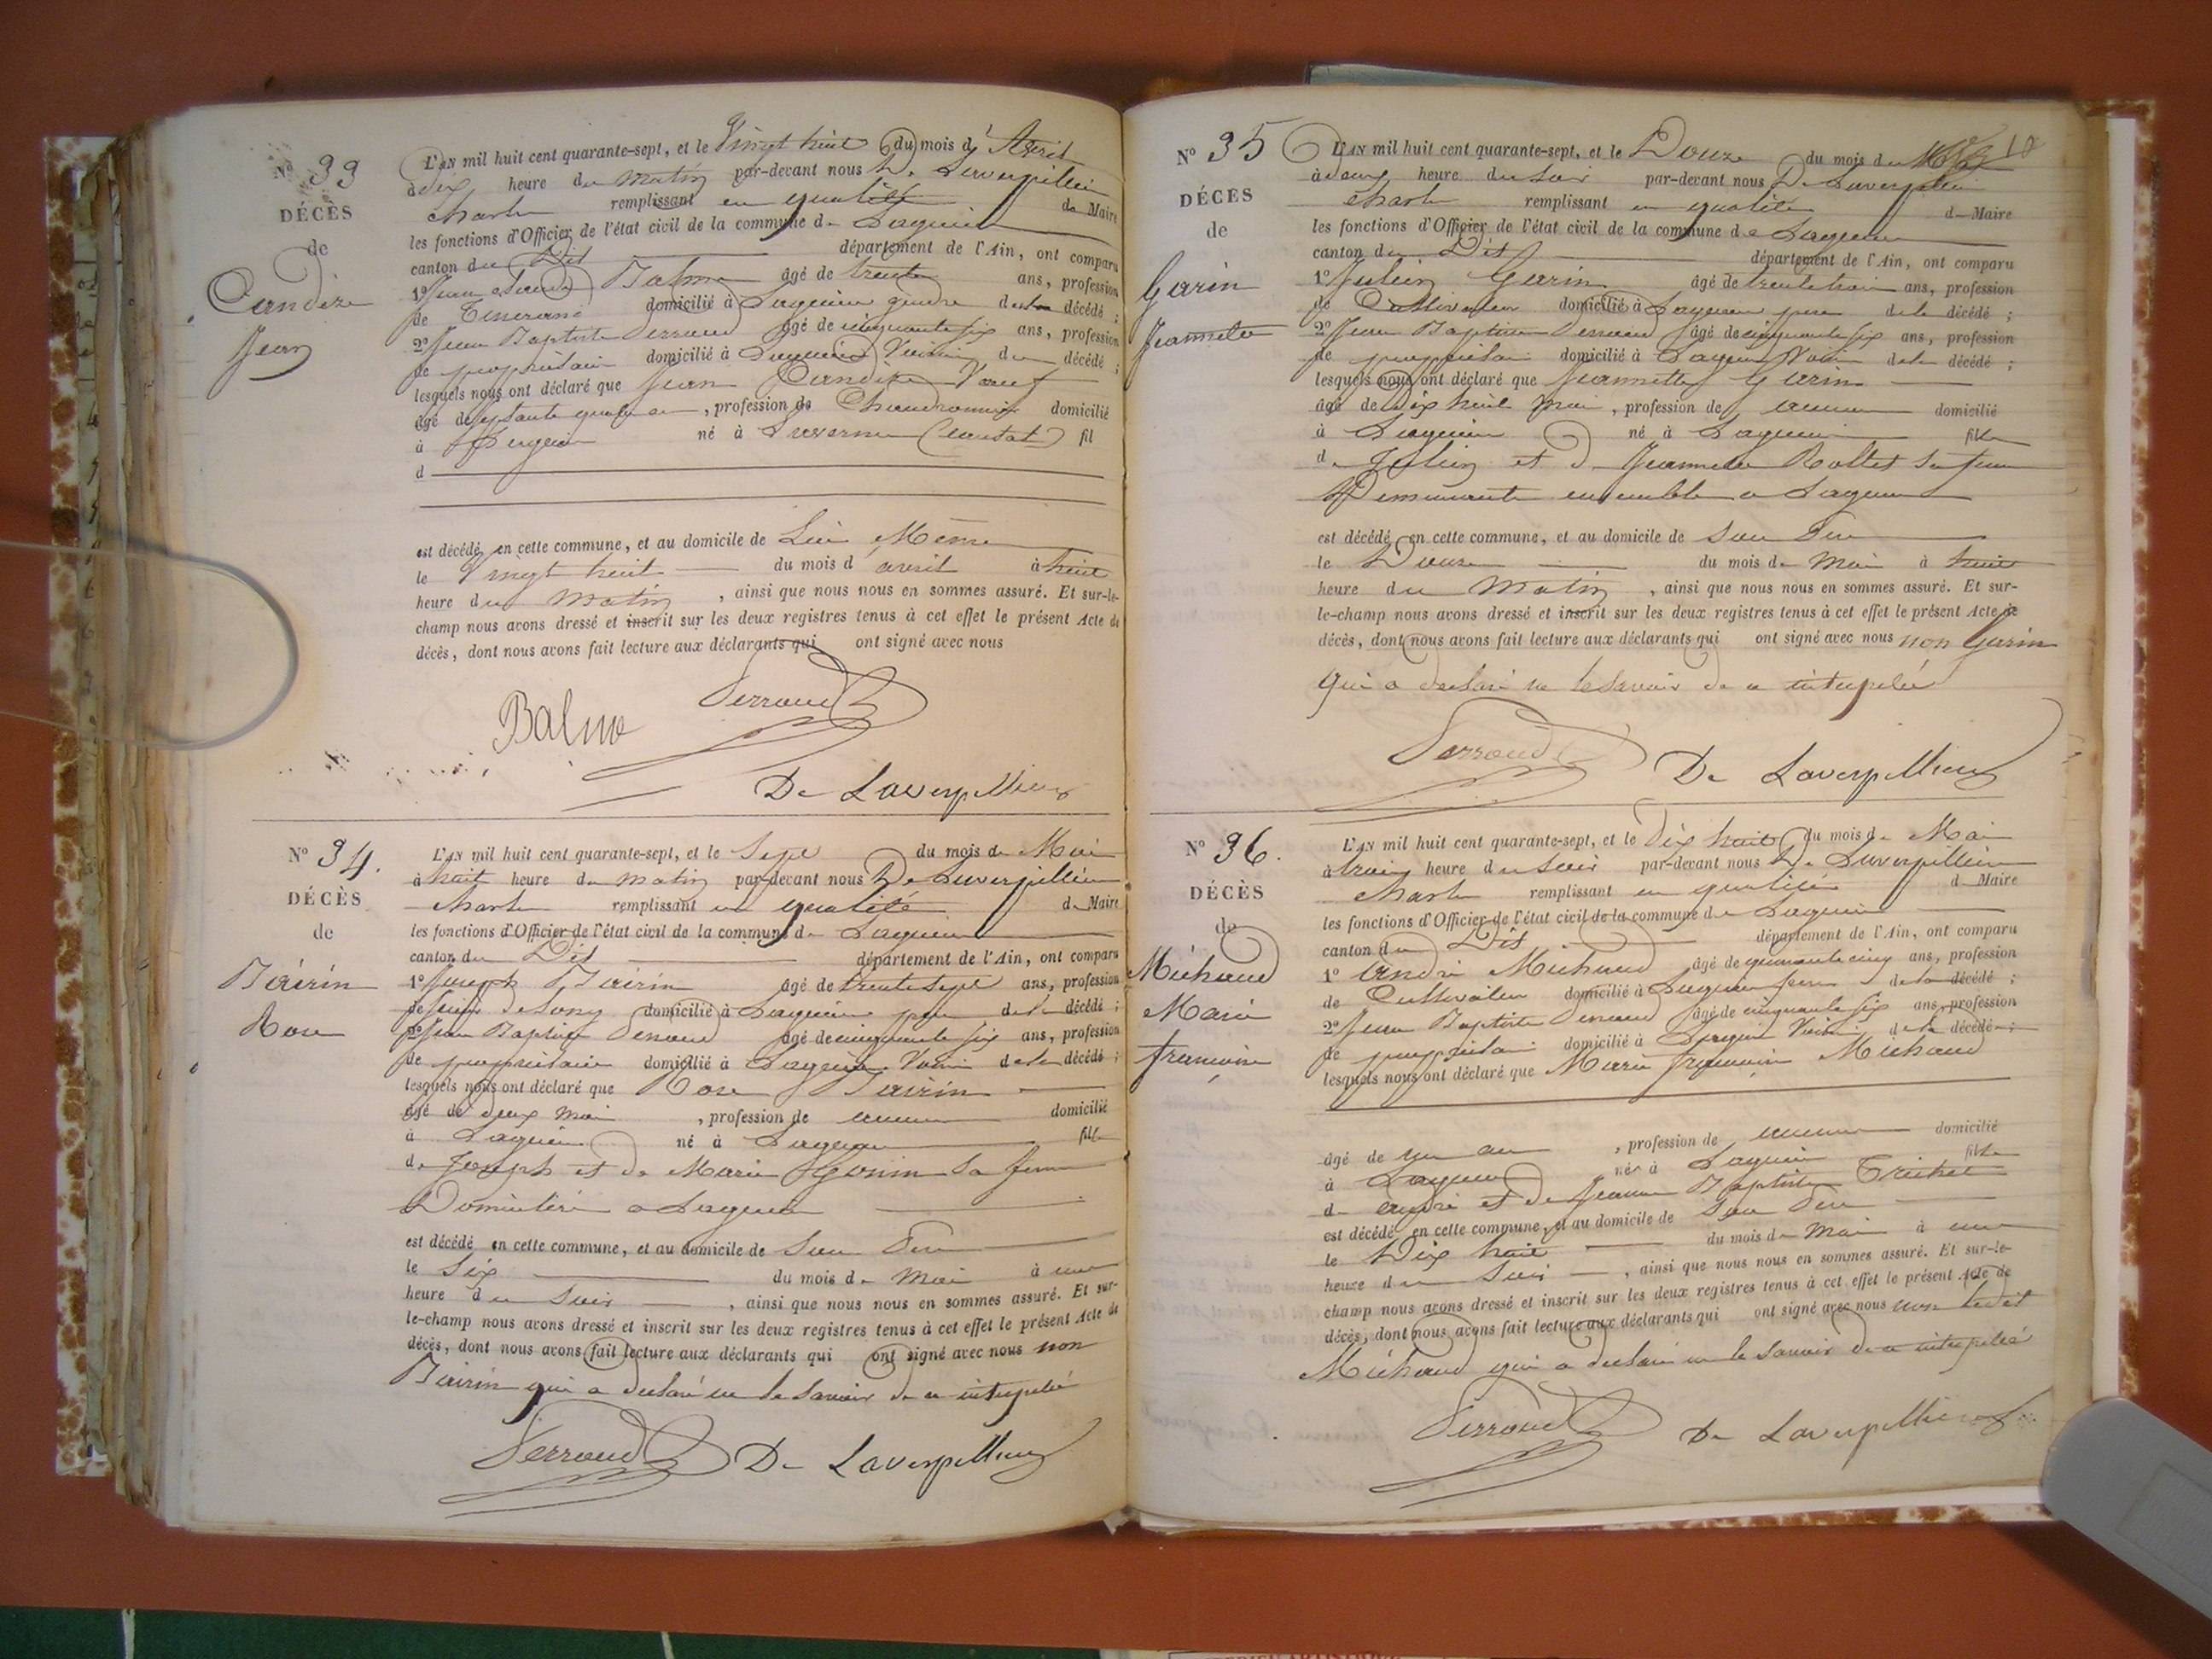 N° 33
DÉCÈS
de
Candize
Jean
L'AN mil huit cent quarante-sept, et le Vingt huit du mois d'Avril
à dix heure du matin par-devant nous De Laverpillière
Charle remplissant en qualité de Maire
les fonctions d'Officier de l'état civil de la commune de Lagnieu
canton du Dit département de l'Ain, ont comparu
1° Jean Balme âgé de trente ans, profession
de domicilié à Lagnieu gendre du décédé ;
2° Jean Baptiste Perroud âgé de cinquante six ans, profession
de propriétaire domicilié à Lagnieu Voisin du décédé ;
lesquels nous ont déclaré que Jean Candize Veuf
âgé de septante quatre an, profession de Chaudronnier domicilié
à Lagnieu né à (Cantal) fil
d
est décédé en cette commune, et au domicile de Lui Même
le Vingt huit du mois d avril à huit
heure du matin, ainsi que nous nous en sommes assuré. Et sur-le-
champ nous avons dressé et inscrit sur les deux registres tenus à cet effet le présent Acte de
décès, dont nous avons fait lecture aux déclarants qui ont signé avec nous
Balme Perroud
De Laverpillière
N° 34.
DÉCÈS
de
Bairin
Rose
L'AN mil huit cent quarante-sept, et le Sept du mois de Mai
à huit heure du matin par-devant nous De Laverpillière
Charle remplissant en qualité de Maire
les fonctions d'Officier de l'état civil de la commune de Lagnieu
canton du Dit département de l'Ain, ont comparu
1° Joseph Bairin âgé de trente sept ans, profession
de domicilié à Lagnieu père de la décédé ;
2° Jean Baptiste Perroud âgé de cinquante six ans, profession
de propriétaire domicilié à Lagnieu Voisin de la décédé ;
lesquels nous ont déclaré que Rose Bairin
âgé de deux moi, profession de aucune domicilié
à Lagnieu né à Lagnieu fille
de Joseph et de Marie Gonin Sa femme
Domicilié a Lagnieu
est décédé en cette commune, et au domicile de Son Père
le Six du mois de Mai à une
heure du Soir, ainsi que nous nous en sommes assuré. Et sur-
le-champ nous avons dressé et inscrit sur les deux registres tenus à cet effet le présent Acte de
décès, dont nous avons fait lecture aux déclarants qui ont signé avec nous non
Bairin qui a declaré ne le Savoir de ce interpelé
Perroud De Laverpillière
N° 35
DÉCÈS
de
Garin
Jeannette
10
L'AN mil huit cent quarante-sept, et le Douze du mois de Mai
à deux heure du Soir par-devant nous De Laverpillière
Charle remplissant en qualité de Maire
les fonctions d'Officier de l'état civil de la commune de Lagnieu
canton du Dit département de l'Ain, ont comparu
1° Julien Garin âgé de trente trois ans, profession
de Cultivateur domicilié à Lagnieu père de la décédé ;
2° Jean Baptiste Perroud âgé de cinquante six ans, profession
de propriétaire domicilié à Lagnieu Voisin de la décédé ;
lesquels nous ont déclaré que Jeannette Garin
âgé de dix huit moi, profession de aucune domicilié
à Lagnieu né à Lagnieu fille
de Julien et de Jeannette Rollet Sa femme
Demeurante ensemble a Lagnieu
est décédé en cette commune, et au domicile de Son Père
le Douze du mois de Mai à huit
heure du Matin, ainsi que nous nous en sommes assuré. Et sur-
le-champ nous avons dressé et inscrit sur les deux registres tenus à cet effet le présent Acte de
décès, dont nous avons fait lecture aux déclarants qui ont signé avec nous non Garin
qui a declaré ne le Savoir de ce interpelé
Perroud De Laverpillière
N° 36.
DÉCÈS
de
Michaud
Marie
françoise
L'AN mil huit cent quarante-sept, et le Dix huit du mois de Mai
à trois heure du Soir par-devant nous De Laverpillière
Charle remplissant en qualité de Maire
les fonctions d'Officier de l'état civil de la commune de Lagnieu
canton du Dit département de l'Ain, ont comparu
1° André Michaud âgé de quarante cinq ans, profession
de Cultivateur domicilié à Lagnieu père de la décédé ;
2° Jean Baptiste Perroud âgé de cinquante six ans, profession
de propriétaire domicilié à Lagnieu Voisin de la décédé ;
lesquels nous ont déclaré que Marie françoise Michaud
âgé de un an, profession de aucune domicilié
à Lagnieu née à Lagnieu fille
d andré et de Jeanne Baptiste Trichet
est décédé en cette commune, et au domicile de Son Père
le Dix huit du mois de Mai à une
heure du Soir, ainsi que nous nous en sommes assuré. Et sur-le-
champ nous avons dressé et inscrit sur les deux registres tenus à cet effet le présent Acte de
décès, dont nous avons fait lecture aux déclarants qui ont signé avec nous non ledit
Michaud qui a declaré ne le Savoir de ce interpelé
Perroud De Laverpillière